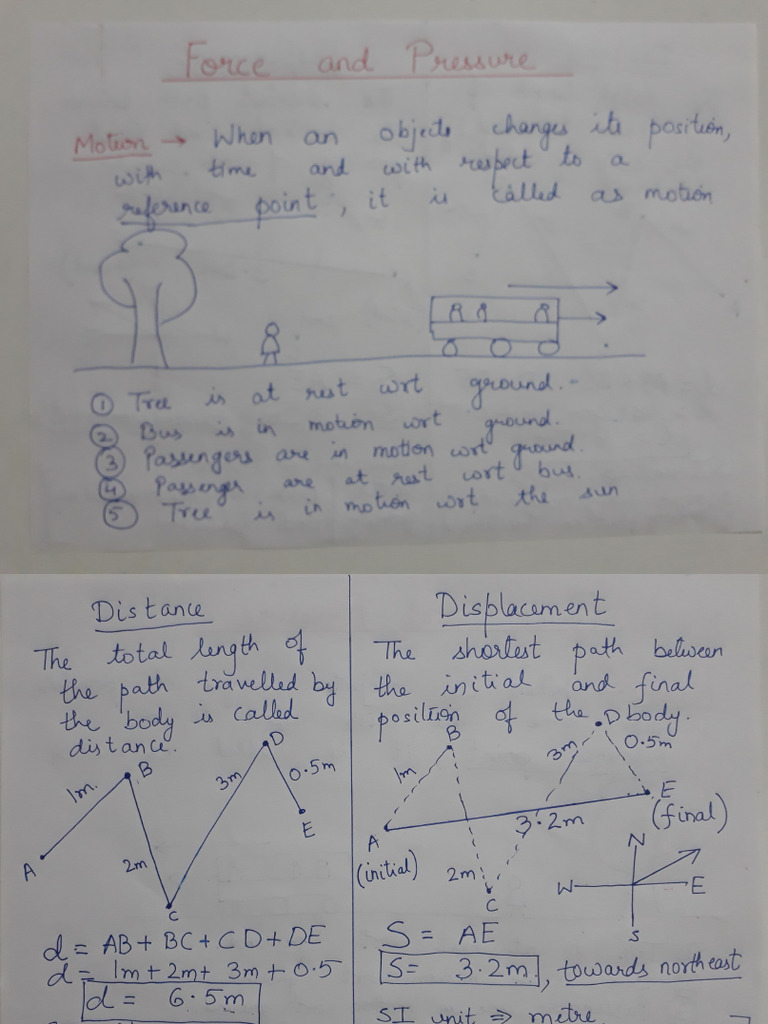 Force and Pressure
Motion → When an objects changes its position,
with time and with respect to a
reference point, it is called as motion
① Tree is at rest wrt ground.-
② Bus is in motion wrt ground.
③ Passengers are in motion wrt ground.
④ Passenger are at rest wrt bus.
⑤ Tree is in motion wrt the sun
Distance
The total length of
the path travelled by
the body is called
distance.
D
B
1m.
3m
0.5m
E
A
2m
C
d = AB + BC + CD + DE
d = 1m + 2m + 3m + 0.5
d = 6.5m
Displacement
The shortest path between
the initial and final
position of the body.
D
B
3m
0.5m
1m
E
(final)
A
3.2m
(initial)
2m
C
N
W
E
S
S = AE
S = 3.2m, towards northeast
SI unit ⇒ metre